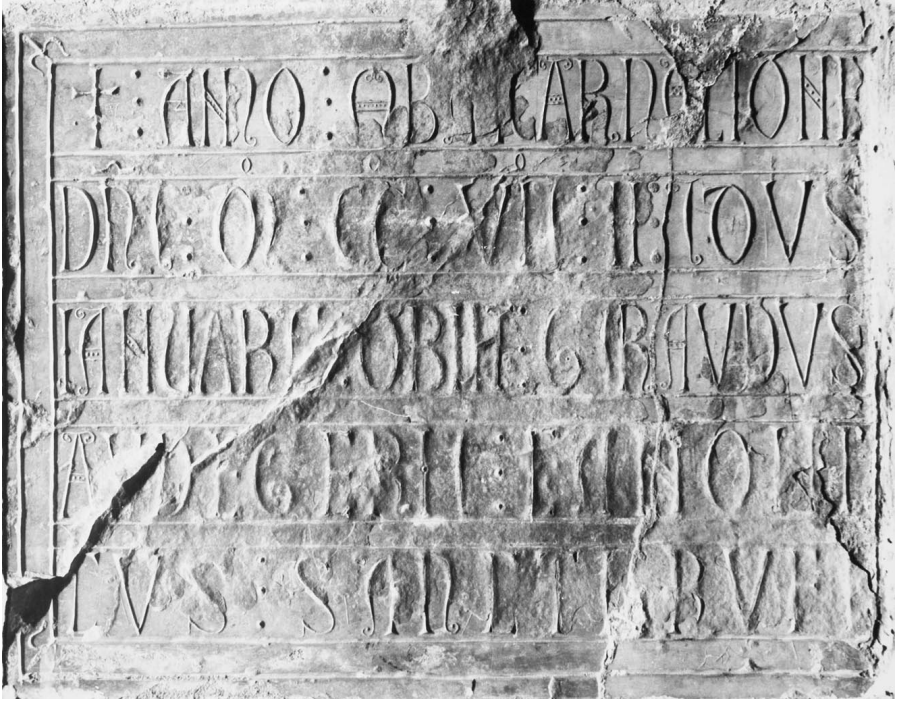 ✝ : ANNO : AB INCARNATIONE
DNI : M : CC : XVII : IDVS
IANUARII : OBIIT : GIRAVDVS
AVDEGERII :
TVS : SANTI RVFI